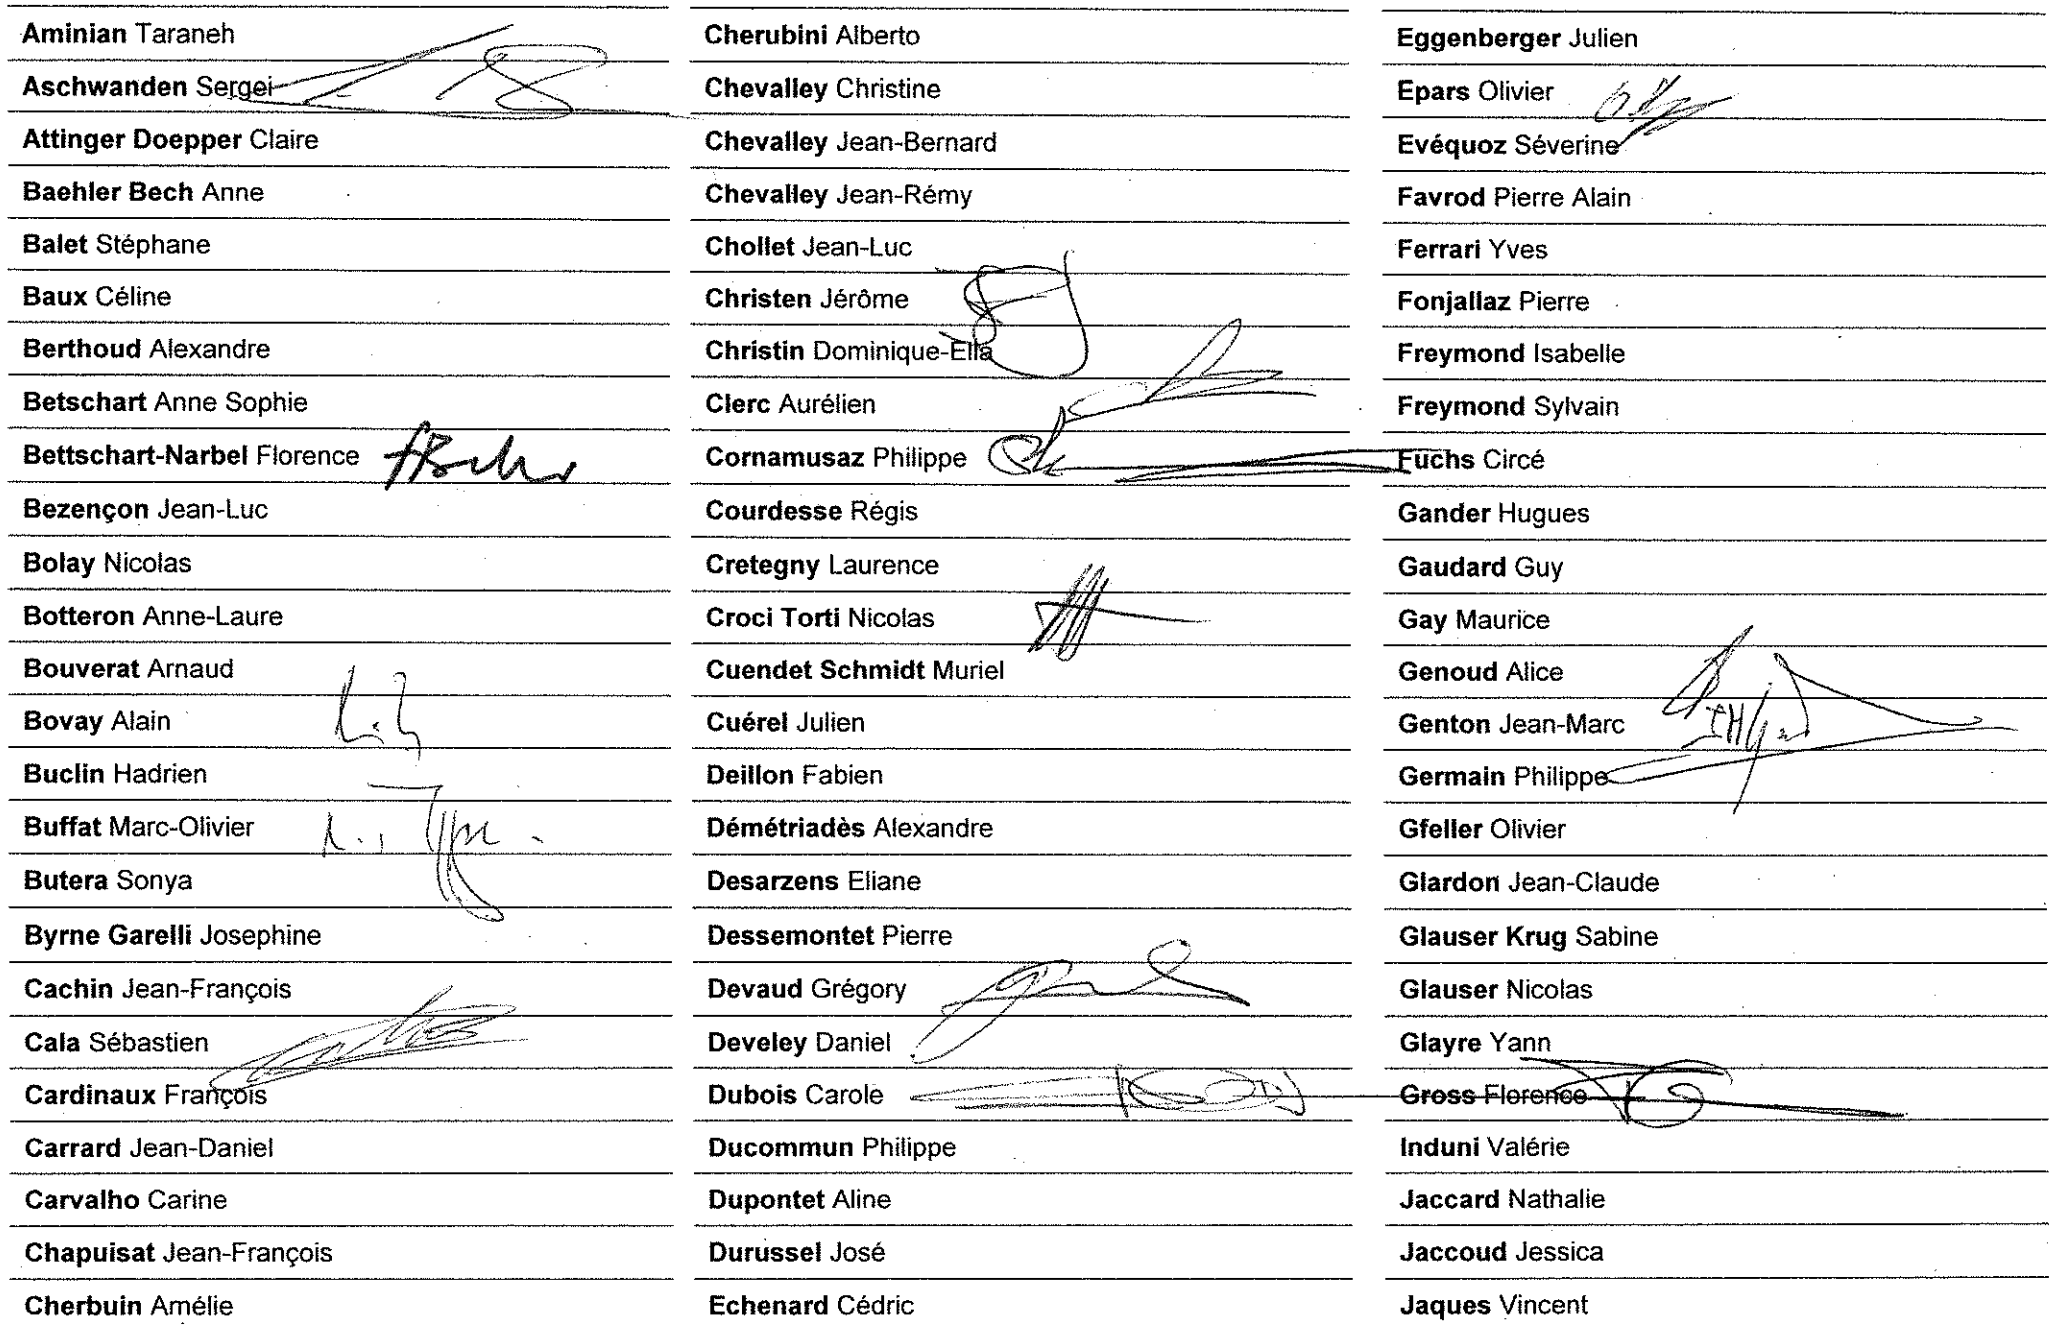 Aminian Taraneh
Aschwanden Sergei
Attinger Doepper Claire
Baehler Bech Anne
Balet Stéphane
Baux Céline
Berthoud Alexandre
Betschart Anne Sophie
Bettschart-Narbel Florence
Bezençon Jean-Luc
Bolay Nicolas
Botteron Anne-Laure
Bouverat Arnaud
Bovay Alain
Buclin Hadrien
Buffat Marc-Olivier
Butera Sonya
Byrne Garelli Josephine
Cachin Jean-François
Cala Sébastien
Cardinaux François
Carrard Jean-Daniel
Carvalho Carine
Chapuisat Jean-François
Cherbuin Amélie
Cherubini Alberto
Chevalley Christine
Chevalley Jean-Bernard
Chevalley Jean-Rémy
Chollet Jean-Luc
Christen Jérôme
Christin Dominique-Ella
Clerc Aurélien
Cornamusaz Philippe
Courdesse Régis
Cretegny Laurence
Croci Torti Nicolas
Cuendet Schmidt Muriel
Cuérel Julien
Deillon Fabien
Démétriadès Alexandre
Desarzens Eliane
Dessemontet Pierre
Devaud Grégory
Develey Daniel
Dubois Carole
Ducommun Philippe
Dupontet Aline
Durussel José
Echenard Cédric
Eggenberger Julien
Epars Olivier
Evéquoz Séverine
Favrod Pierre Alain
Ferrari Yves
Fonjallaz Pierre
Freymond Isabelle
Freymond Sylvain
Fuchs Circé
Gander Hugues
Gaudard Guy
Gay Maurice
Genoud Alice
Genton Jean-Marc
Germain Philippe
Gfeller Olivier
Glardon Jean-Claude
Glauser Krug Sabine
Glauser Nicolas
Glayre Yann
Gross Florence
Induni Valérie
Jaccard Nathalie
Jaccoud Jessica
Jaques Vincent